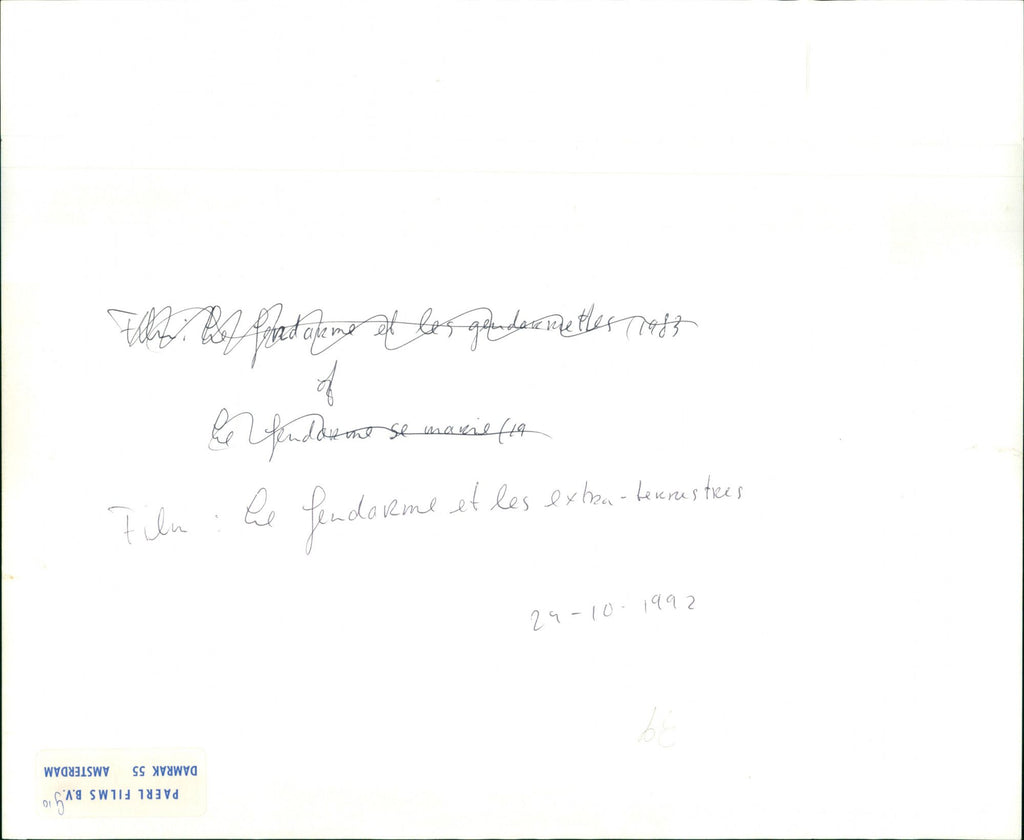 Film: Le Gendarme et les gendarmettes (1983
of
Le Gendarme se marie (19
Film : Le Gendarme et les extra-terrestres
29-10-1992
PAERL FILMS B.V.
DAMRAK 55 AMSTERDAM